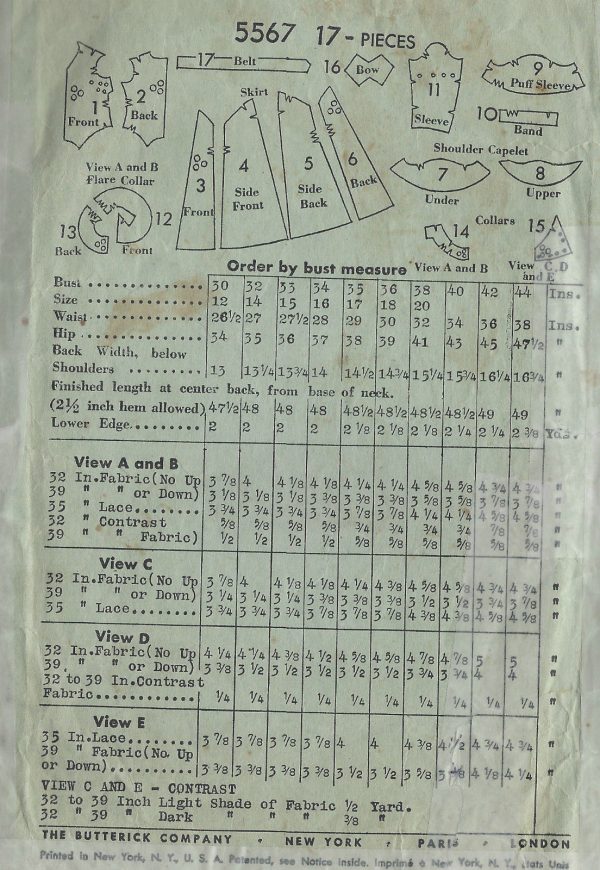 5567 17 - PIECES
17 Belt
16 Bow
9 Puff Sleeve
1 Front
2 Back
11 Sleeve
10 Band
Skirt
3 Front
4 Side Front
5 Side Back
6 Back
Shoulder Capelet
7 Under
8 Upper
View A and B
Flare Collar
13 Back
12 Front
Collars
14
15
View A and B
View C, D and E
Order by bust measure
Bust 30 32 33 34 35 36 38 40 42 44 Ins.
Size 12 14 15 16 17 18 20
Waist 26½ 27 27½ 28 29 30 32 34 36 38 Ins.
Hip 34 35 36 37 38 39 41 43 45 47½ "
Back Width, below
Shoulders 13 13¼ 13¾ 14 14½ 14¾ 15¼ 15¾ 16¼ 16¾ "
Finished length at center back, from base of neck.
(2½ inch hem allowed) 47½ 48 48 48 48½ 48½ 48½ 48½ 49 49 "
Lower Edge 2 2 2 2 2⅛ 2⅛ 2⅛ 2¼ 2¼ 2⅜ Yds.
View A and B
32 In.Fabric(No Up 3⅞ 4 4⅛ 4⅛ 4¼ 4¼ 4⅝ 4⅝ 4¾ 4¾ "
39 " " or Down) 3⅛ 3⅛ 3⅛ 3⅜ 3⅜ 3⅜ 3⅝ 3⅝ 3⅞ 3⅞ "
35 " Lace 3¾ 3¾ 3¾ 3¾ 3⅞ 3⅞ 4¼ 4¼ 4⅝ 4⅝ "
32 " Contrast ⅝ ⅝ ⅝ ⅝ ¾ ¾ ¾ ¾ ⅞ ⅞ "
39 " " Fabric) ½ ½ ½ ½ ⅝ ⅝ ⅝ ⅝ ⅝ ⅝ "
View C
32 In.Fabric(No Up 3⅞ 4 4⅛ 4⅛ 4¼ 4⅜ 4⅝ 4⅝ 4¾ 4¾ "
39 " " or Down) 3¼ 3¼ 3¼ 3⅜ 3⅜ 3⅜ 3½ 3½ 3¾ 3⅞ "
35 " Lace 3¾ 3¾ 3¾ 3⅞ 3⅞ 3⅞ 4⅜ 4⅜ 4⅝ 4⅝ "
View D
32 In.Fabric(No Up 4¼ 4¼ 4⅜ 4½ 4⅝ 4⅝ 4⅞ 4⅞ 5 5 "
39 " " or Down) 3⅜ 3½ 3½ 3½ 3½ 3½ 3¾ 3¾ 4 4 "
32 to 39 In.Contrast
Fabric ¼ ¼ ¼ ¼ ¼ ¼ ¼ ¼ ¼ ¼ "
View E
35 In.Lace 3⅞ 3⅞ 3⅞ 3⅞ 4 4 4⅜ 4½ 4¾ 4¾ "
39 " Fabric(No Up
or Down) 3⅜ 3⅜ 3⅜ 3⅜ 3½ 3½ 3⅝ 4⅛ 4¼ "
VIEW C AND E - CONTRAST
32 to 39 Inch Light Shade of Fabric ½ Yard.
32 " 39 " Dark " " " ⅜ "
THE BUTTERICK COMPANY • NEW YORK • PARIS • LONDON
Printed in New York, N. Y., U. S. A. Patented, see Notice Inside. Imprimé à New York, N. Y., Etats Unis